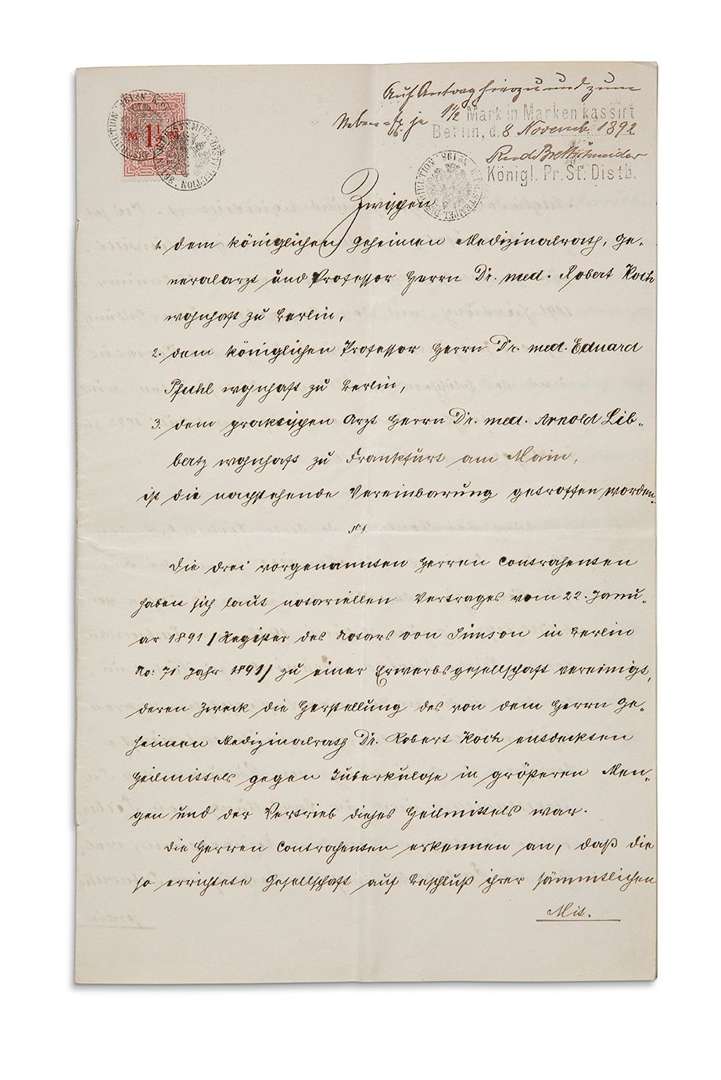 Auf Antrag hierzu und zum
1½ Mark in Marken kassirt
Berlin, d. 8 Novemb. 1892
Königl. Pr. St. Distb.
1½
Zwischen
1. dem königlichen Geheimen Medizinalrath, Ge-
neralarzt und Professor Herrn Dr. med. Robert Koch
wohnhaft zu Berlin,
2. dem königlichen Professor Herrn Dr. med. Eduard
Pfuhl wohnhaft zu Berlin,
3. dem praktischen Arzt Herrn Dr. med. Arnold Lib-
bertz wohnhaft zu Frankfurt am Main,
ist die nachstehende Vereinbarung getroffen worden.
§ 1
Die drei vorgenannten Herren Contrahenten
haben sich laut notariellen Vertrages vom 22. Janu-
ar 1891 /Register des Notars von Simson in Berlin
No: 71 Jahr 1891/ zu einer Erwerbsgesellschaft vereinigt,
deren Zweck die Herstellung des von dem Herrn Ge-
heimen Medizinalrath Dr. Robert Koch entdeckten
Heilmittels gegen Tuberkulose in größeren Men-
gen und der Vertrieb dieses Heilmittels war.
Die Herren Contrahenten erkennen an, daß die
so errichtete Gesellschaft auf Beschluß ihrer sämmtlichen
Mit-